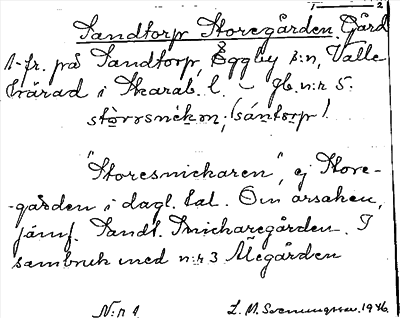 1 2
Sandtorp Storegården. Gård
1-fr. på Sandtorp, Eggby s:n, Valle
härad i Skarab. l. – Gb. n:r 5.
"Storesnickaren", ej Store-
-gården i dagl. tal. Om orsaken,
jämf. Sandt. Snickaregården. I
sambruk med n:r 3 Allegården
N:r 1 L. M. Svenungsson. 1946.